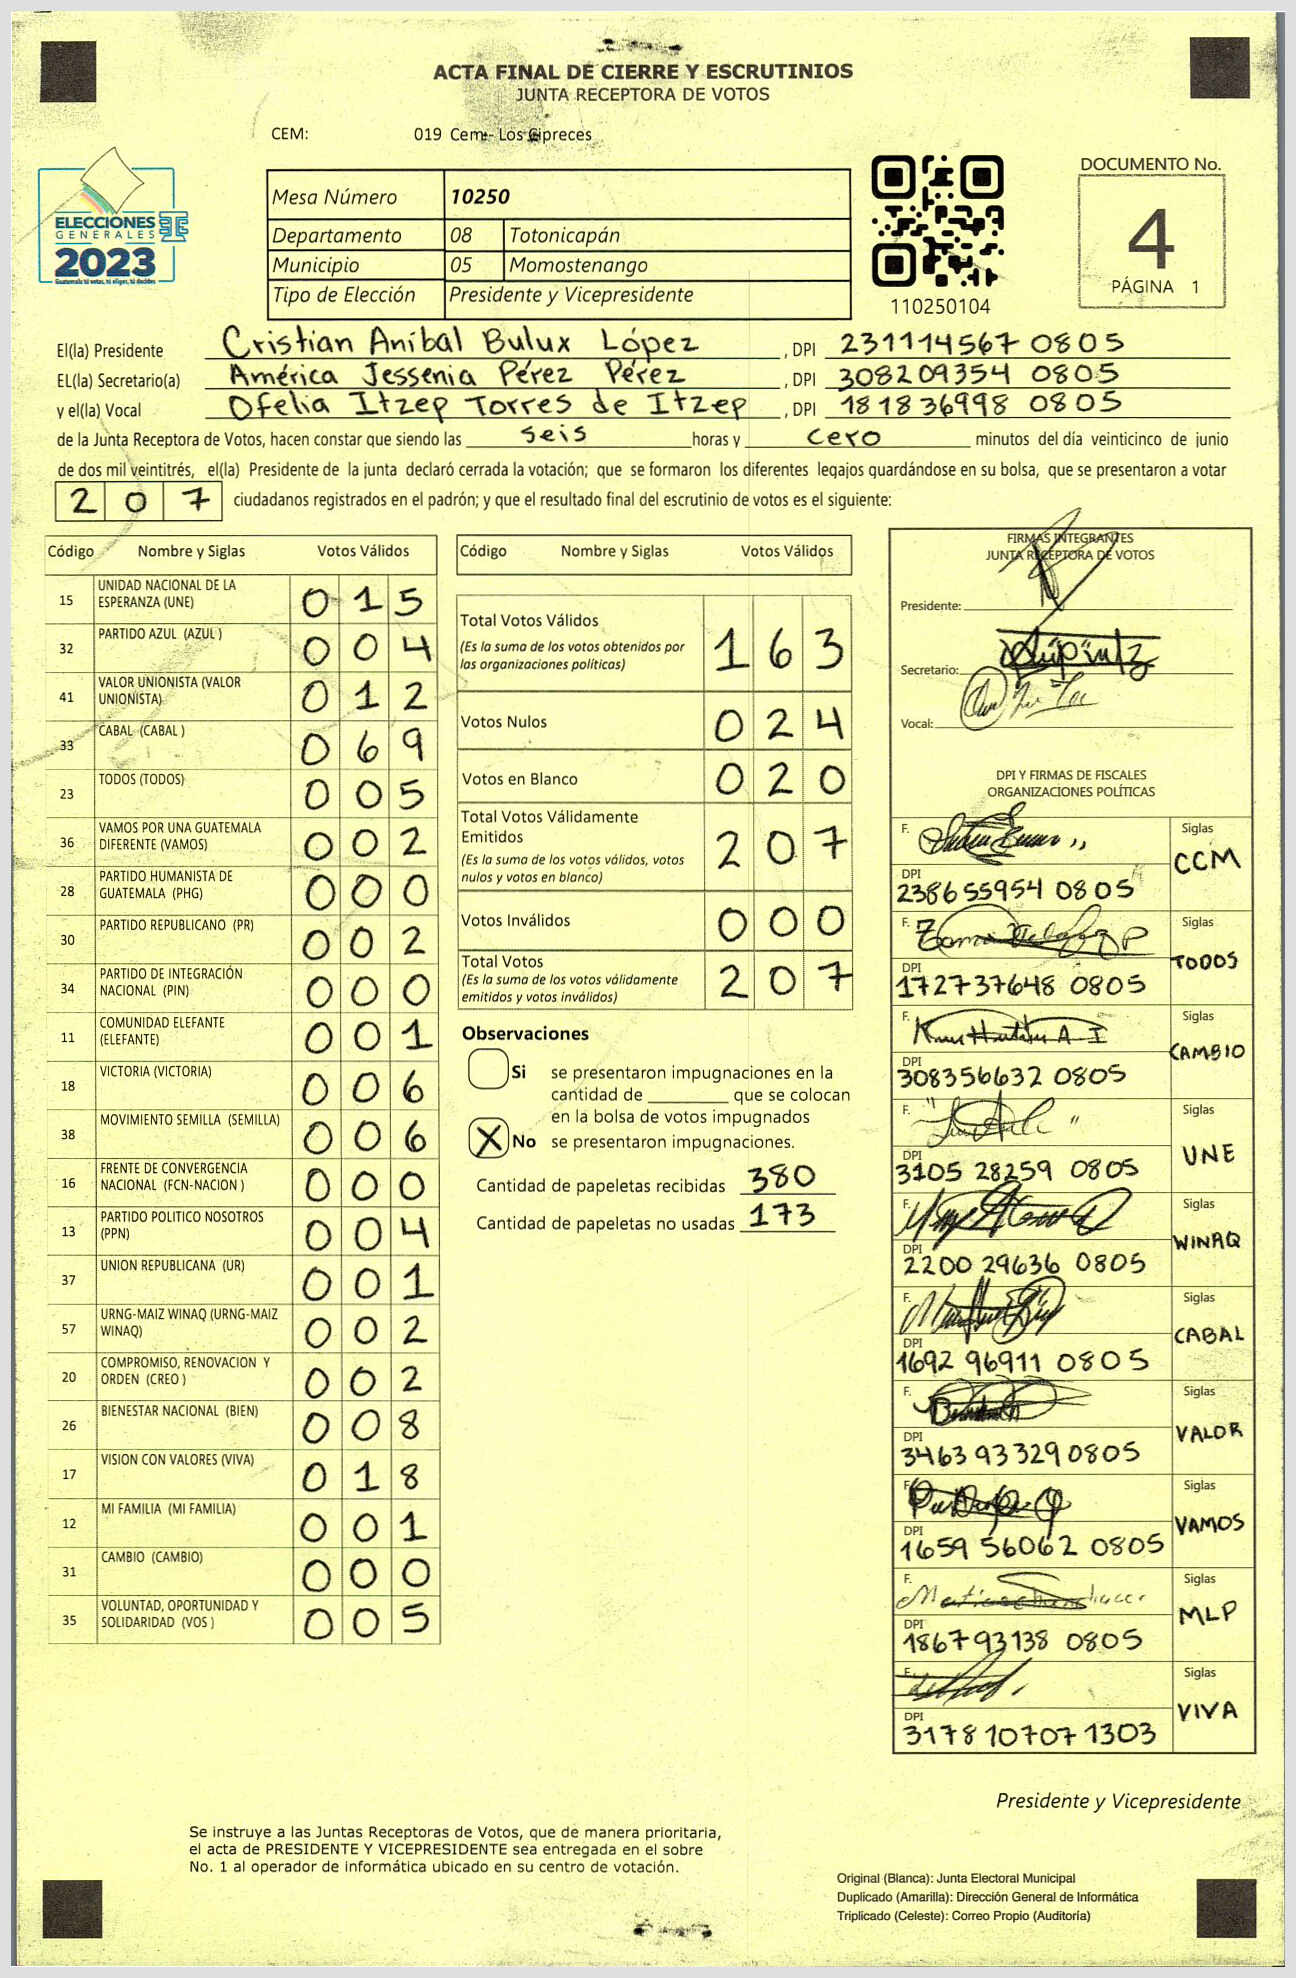 ACTA FINAL DE CIERRE Y ESCRUTINIOS
JUNTA RECEPTORA DE VOTOS
CEM: 019 Cem- Los Cipreces
ELECCIONES
GENERALES
2023
Guatemala tú votas, tú eliges, tú decides
Mesa Número 10250
Departamento 08 Totonicapán
Municipio 05 Momostenango
Tipo de Elección Presidente y Vicepresidente
110250104
DOCUMENTO No.
4
PÁGINA 1
El(la) Presidente Cristian Aníbal Bulux López , DPI 231114567 0805
EL(la) Secretario(a) América Jessenia Pérez Pérez , DPI 308209354 0805
y el(la) Vocal Ofelia Itzep Torres de Itzep , DPI 181836998 0805
de la Junta Receptora de Votos, hacen constar que siendo las seis horas y cero minutos del día veinticinco de junio
de dos mil veintitrés, el(la) Presidente de la junta declaró cerrada la votación; que se formaron los diferentes legajos guardándose en su bolsa, que se presentaron a votar
207 ciudadanos registrados en el padrón; y que el resultado final del escrutinio de votos es el siguiente:
Código Nombre y Siglas Votos Válidos
15 UNIDAD NACIONAL DE LA
ESPERANZA (UNE) 015
32 PARTIDO AZUL (AZUL ) 004
41 VALOR UNIONISTA (VALOR
UNIONISTA) 012
33 CABAL (CABAL ) 069
23 TODOS (TODOS) 005
36 VAMOS POR UNA GUATEMALA
DIFERENTE (VAMOS) 002
28 PARTIDO HUMANISTA DE
GUATEMALA (PHG) 000
30 PARTIDO REPUBLICANO (PR) 002
34 PARTIDO DE INTEGRACIÓN
NACIONAL (PIN) 000
11 COMUNIDAD ELEFANTE
(ELEFANTE) 001
18 VICTORIA (VICTORIA) 006
38 MOVIMIENTO SEMILLA (SEMILLA) 006
16 FRENTE DE CONVERGENCIA
NACIONAL (FCN-NACION ) 000
13 PARTIDO POLITICO NOSOTROS
(PPN) 004
37 UNION REPUBLICANA (UR) 001
57 URNG-MAIZ WINAQ (URNG-MAIZ
WINAQ) 002
20 COMPROMISO, RENOVACION Y
ORDEN (CREO ) 002
26 BIENESTAR NACIONAL (BIEN) 008
17 VISION CON VALORES (VIVA) 018
12 MI FAMILIA (MI FAMILIA) 001
31 CAMBIO (CAMBIO) 000
35 VOLUNTAD, OPORTUNIDAD Y
SOLIDARIDAD (VOS ) 005
Código Nombre y Siglas Votos Válidos
Total Votos Válidos
(Es la suma de los votos obtenidos por
las organizaciones políticas) 163
Votos Nulos 024
Votos en Blanco 020
Total Votos Válidamente
Emitidos
(Es la suma de los votos válidos, votos
nulos y votos en blanco) 207
Votos Inválidos 000
Total Votos
(Es la suma de los votos válidamente
emitidos y votos inválidos) 207
Observaciones
Si se presentaron impugnaciones en la
cantidad de que se colocan
en la bolsa de votos impugnados
X No se presentaron impugnaciones.
Cantidad de papeletas recibidas 380
Cantidad de papeletas no usadas 173
FIRMAS INTEGRANTES
JUNTA RECEPTORA DE VOTOS
Presidente:
Secretario:
Vocal:
DPI Y FIRMAS DE FISCALES
ORGANIZACIONES POLÍTICAS
F. Siglas
CCM
DPI
238655954 0805
F. Siglas
TODOS
DPI
172737648 0805
F. Siglas
CAMBIO
DPI
308356632 0805
F. Siglas
UNE
DPI
3105 28259 0805
F. Siglas
WINAQ
DPI
2200 29636 0805
F. Siglas
CABAL
DPI
1692 96911 0805
F. Siglas
VALOR
DPI
3463 93329 0805
F. Siglas
VAMOS
DPI
1659 56062 0805
F. Siglas
MLP
DPI
1867 93138 0805
F. Siglas
VIVA
DPI
3178 10707 1303
Presidente y Vicepresidente
Se instruye a las Juntas Receptoras de Votos, que de manera prioritaria,
el acta de PRESIDENTE Y VICEPRESIDENTE sea entregada en el sobre
No. 1 al operador de informática ubicado en su centro de votación.
Original (Blanca): Junta Electoral Municipal
Duplicado (Amarilla): Dirección General de Informática
Triplicado (Celeste): Correo Propio (Auditoría)